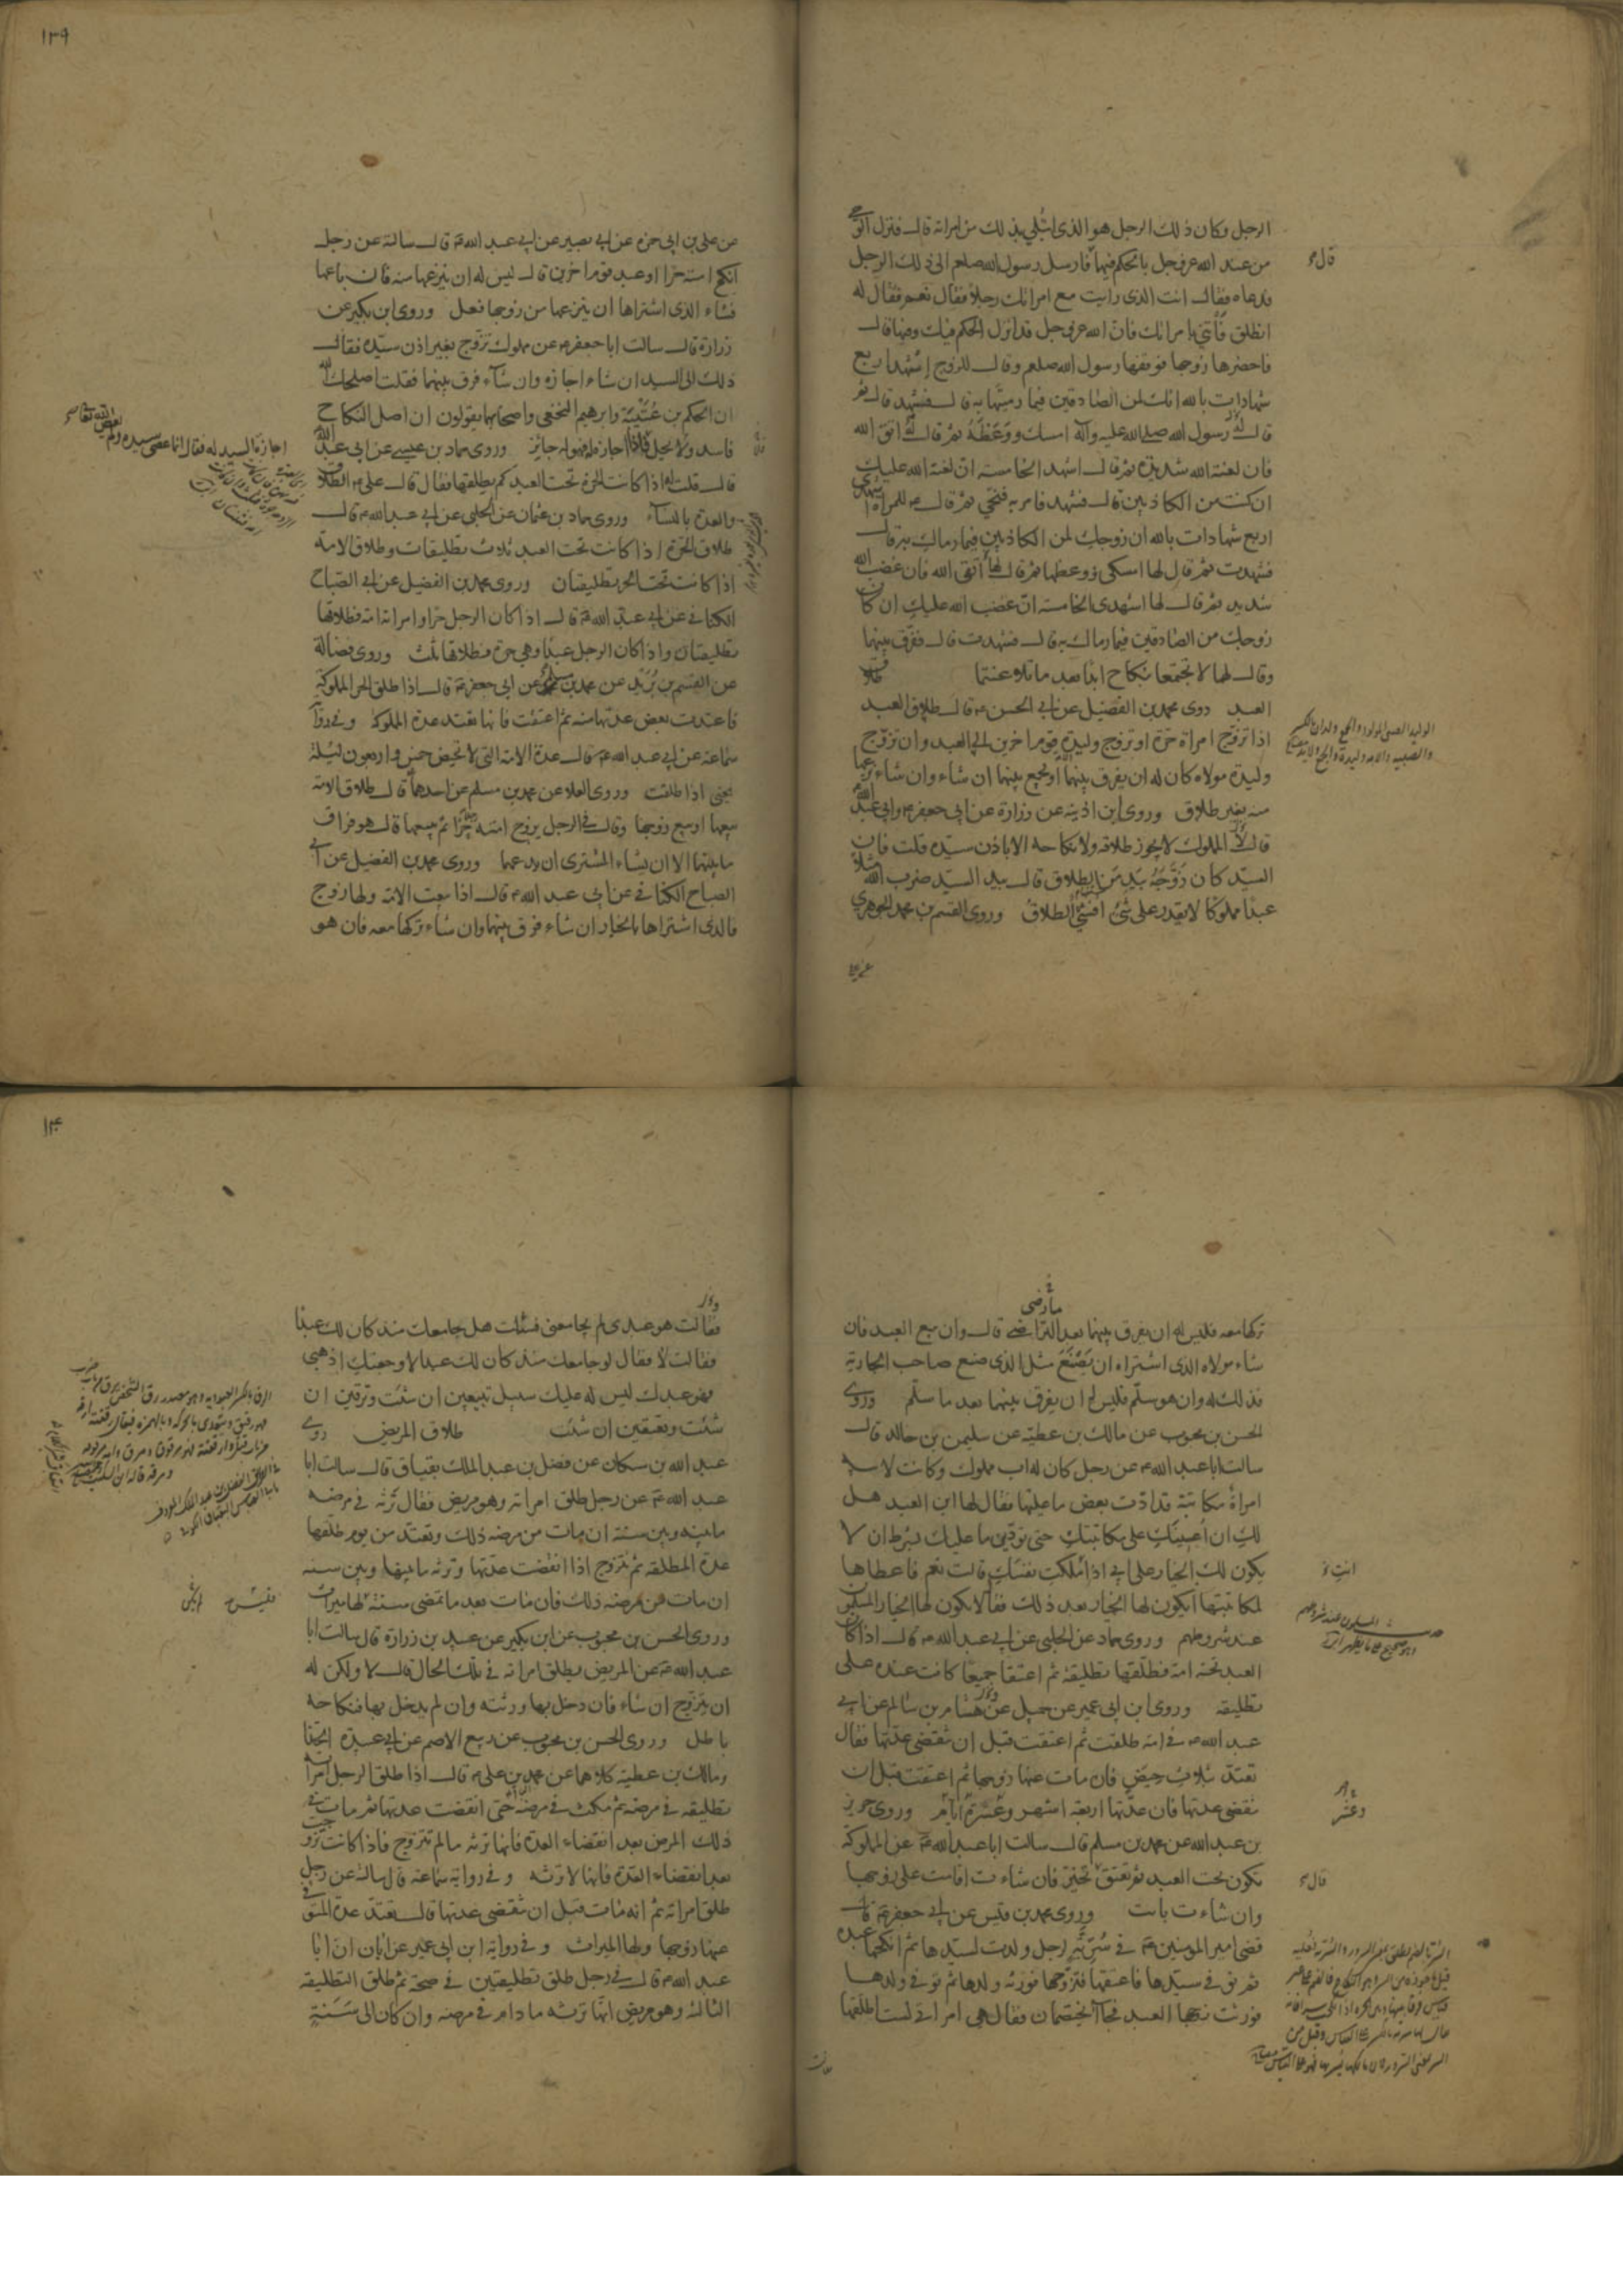 الرجل وكان ذلك الرجل هو الذى ابتلي بذلك من امراته قال فنزل الوحي
من عند الله عز وجل بالحكم فيهما فارسل رسول الله صلعم الى ذلك الرجل
فدعاه فقال انت الذى رايت مع امراتك رجلا فقال نعم فقال له
انطلق فأتني بامراتك فان الله عز وجل قد انزل الحكم فيك وفيها قال
فاحضرها زوجها فوقفها رسول الله صلعم وقال للزوج اشهد اربع
شهادات بالله انك لمن الصادقين فيما رميتها به قال فشهد قال ثم
قال له رسول الله صلى الله عليه وآله امسك ووعظه ثم قال له اتق الله
فان لعنة الله شديدة ثم قال اشهد الخامسة ان لعنة الله عليك
ان كنت من الكاذبين قال فشهد فامر به فنحي ثم قال ع للمراة اشهدي
اربع شهادات بالله ان زوجك لمن الكاذبين فيما رماك به قال
فشهدت ثم قال لها امسكي ووعظها ثم قال لها اتقى الله فان غضب الله
شديد ثم قال لها اشهدى الخامسة ان غضب الله عليك ان كان
زوجك من الصادقين فيما رماك به قال فشهدت قال ففرق بينهما
وقال لهما لا تجتمعا بنكاح ابدا بعد ما تلاعنتما طلاق
العبد روى محمد بن الفضيل عن ابي الحسن ع قال طلاق العبد
اذا تزوج امراة حرة او تزوج وليدة قوم اخرين الى العبد وان تزوج
وليدة مولاه كان له ان يفرق بينهما او يجمع بينهما ان شاء وان شاء نزعها
منه بغير طلاق وروى ابن اذينة عن زرارة عن ابى جعفر ع وابي عبد الله
قالا المملوك لا يجوز طلاقه ولا نكاحه الا باذن سيده قلت فان
السيد كان زوجه بيد من الطلاق قال بيد السيد ضرب الله مثلا
عبدا مملوكا لا يقدر على شئ افشئ الطلاق وروى القسم بن محمد الجوهري
قال ع
١٣٩
عن على بن ابى حمزة عن ابي بصير عن ابي عبد الله ع قال سالته عن رجل
انكح امته حرا او عبد قوم اخرين قال ليس له ان ينزعها منه فان باعها
فشاء الذى اشتراها ان ينزعها من زوجها فعل وروى ابن بكير عن
زرارة قال سالت ابا جعفر ع عن مملوك تزوج بغير اذن سيده فقال
ذلك الى السيد ان شاء اجازه وان شاء فرق بينهما فقلت اصلحك الله
ان الحكم بن عتيبة وابرهيم النخعى واصحابهما يقولون ان اصل النكاح
فاسد ولا يحل فاذا اجازه فهو له جايز وروى حماد بن عيسى عن ابي عبد الله
قال قلت له اذا كانت الحرة تحت العبد كم يطلقها فقال قال على ع الطلاق
والعدة بالنساء وروى حماد بن عثمان عن الحلبي عن ابي عبد الله ع قال
طلاق الحرة اذا كانت تحت العبد ثلاث تطليقات وطلاق الامة
اذا كانت تحت الحر تطليقتان وروى محمد بن الفضيل عن ابي الصباح
الكناني عن ابي عبد الله ع قال اذا كان الرجل حرا وامراته امة فطلاقها
تطليقتان واذا كان الرجل عبدا وهي حرة فطلاقها ثلث وروى فضالة
عن القسم بن بريد عن محمد بن مسلم عن ابى جعفر ع قال اذا طلق الحر المملوكة
فاعتدت بعض عدتها منه ثم اعتقت فانها تعتد عدة المملوكة وفي رواية
سماعة عن ابي عبد الله ع قال عدة الامة التى لا تحيض خمس واربعون ليلة
يعنى اذا طلقت وروى العلا عن محمد بن مسلم عن احدهما ع قال طلاق الامة
بيعها او بيع زوجها وقال في الرجل يزوج امته رجلا حرا ثم يبيعها قال هو فراق
ما بينهما الا ان يشاء المشترى ان يدعهما وروى محمد بن الفضيل عن ابي
الصباح الكناني عن ابى عبد الله ع قال اذا بيعت الامة ولها زوج
فالذى اشتراها بالخيار ان شاء فرق بينهما وان شاء تركها معه فان هو
تركها معه فليس له ان يفرق بينهما بعد التراضي قال وان بيع العبد فان
شاء مولاه الذى اشتراه ان يصنع مثل الذى صنع صاحب الجارية
فذلك له وان هو سلم فليس له ان يفرق بينهما بعد ما سلم وروى
الحسن بن محبوب عن مالك بن عطية عن سليمن بن خالد قال
سالت ابا عبد الله ع عن رجل كان له اب مملوك وكانت لابيه
امراة مكاتبة قد ادت بعض ما عليها فقال لها ابن العبد هل
لك ان اعينك على مكاتبتك حتى تؤدين ما عليك بشرط ان لا
يكون لك الخيار على ابي اذا ملكت نفسك قالت نعم فاعطاها
لمكاتبتها ايكون لها الخيار بعد ذلك فقال لا يكون لها الخيار المسلمون
عند شروطهم وروى حماد عن الحلبي عن ابي عبد الله ع قال اذا كان
العبد تحته امة فطلقها تطليقة ثم اعتقا جميعا كانت عنده على
تطليقة وروى ابن ابى عمير عن جميل عن هشام بن سالم عن ابي
عبد الله ع في امة طلقت ثم اعتقت قبل ان تنقضى عدتها فقال
تعتد بثلاث حيض فان مات عنها زوجها ثم اعتقت قبل ان
تنقضى عدتها فان عدتها اربعة اشهر وعشرة ايام وروى حريز
بن عبد الله عن محمد بن مسلم قال سالت ابا عبد الله ع عن المملوكة
تكون تحت العبد ثم تعتق تخير فان شاءت اقامت على زوجها
وان شاءت بانت وروى محمد بن قيس عن ابي جعفر ع قال
قضى امير المؤمنين ع في سرية رجل ولدت لسيدها ثم انكحها عبده
ثم توفي سيدها فاعتقها فتزوجها فورثه ولدها ثم توفي ولدها
فورثت زوجها العبد فجاآ يختصمان فقال هى امراتى لست اطلقها
وعشر
قال ع
١٤٠
فقالت هو عبدى لم يجامعنى فسئلت هل جامعك منذ كان لك عبدا
فقالت لا فقال لو جامعك منذ كان لك عبدا لاوجعتك اذهبى
فهو عبدك ليس له عليك سبيل تبيعين ان شئت وترقين ان
شئت وتعتقين ان شئت طلاق المريض روى
عبد الله بن مسكان عن فضل بن عبد الملك البقباق قال سالت ابا
عبد الله ع عن رجل طلق امراته وهو مريض فقال ترثه في مرضه
ما بينه وبين سنة ان مات من مرضه ذلك وتعتد من يوم طلقها
عدة المطلقة ثم تتزوج اذا انقضت عدتها وترثه ما بينها وبين سنة
ان مات من مرضه ذلك فان مات بعد ما تمضى سنة لم يكن لها ميراث
وروى الحسن بن محبوب عن ابن بكير عن عبيد بن زرارة قال سالت ابا
عبد الله ع عن المريض يطلق امراته في تلك الحال قال لا ولكن له
ان يتزوج ان شاء فان دخل بها ورثته وان لم يدخل بها فنكاحه
باطل وروى الحسن بن محبوب عن ربيع الاصم عن ابي عبيدة الحذا
ومالك بن عطية كلاهما عن محمد بن على ع قال اذا طلق الرجل امراته
تطليقة في مرضه ثم مكث في مرضه حتى انقضت عدتها ثم مات في
ذلك المرض بعد انقضاء العدة فانها ترثه ما لم تتزوج فاذا كانت تزوجت
بعد انقضاء العدة فانها لا ترثه وفي رواية سماعة قال سالته عن رجل
طلق امراته ثم انه مات قبل ان تنقضى عدتها قال تعتد عدة المتوفى
عنها زوجها ولها الميراث وفي رواية ابن ابى عمير عن ابان ان ابا
عبد الله ع قال في رجل طلق تطليقتين في صحة ثم طلق التطليقة
الثالثة وهو مريض انها ترثه ما دام في مرضه وان كان الى سنة